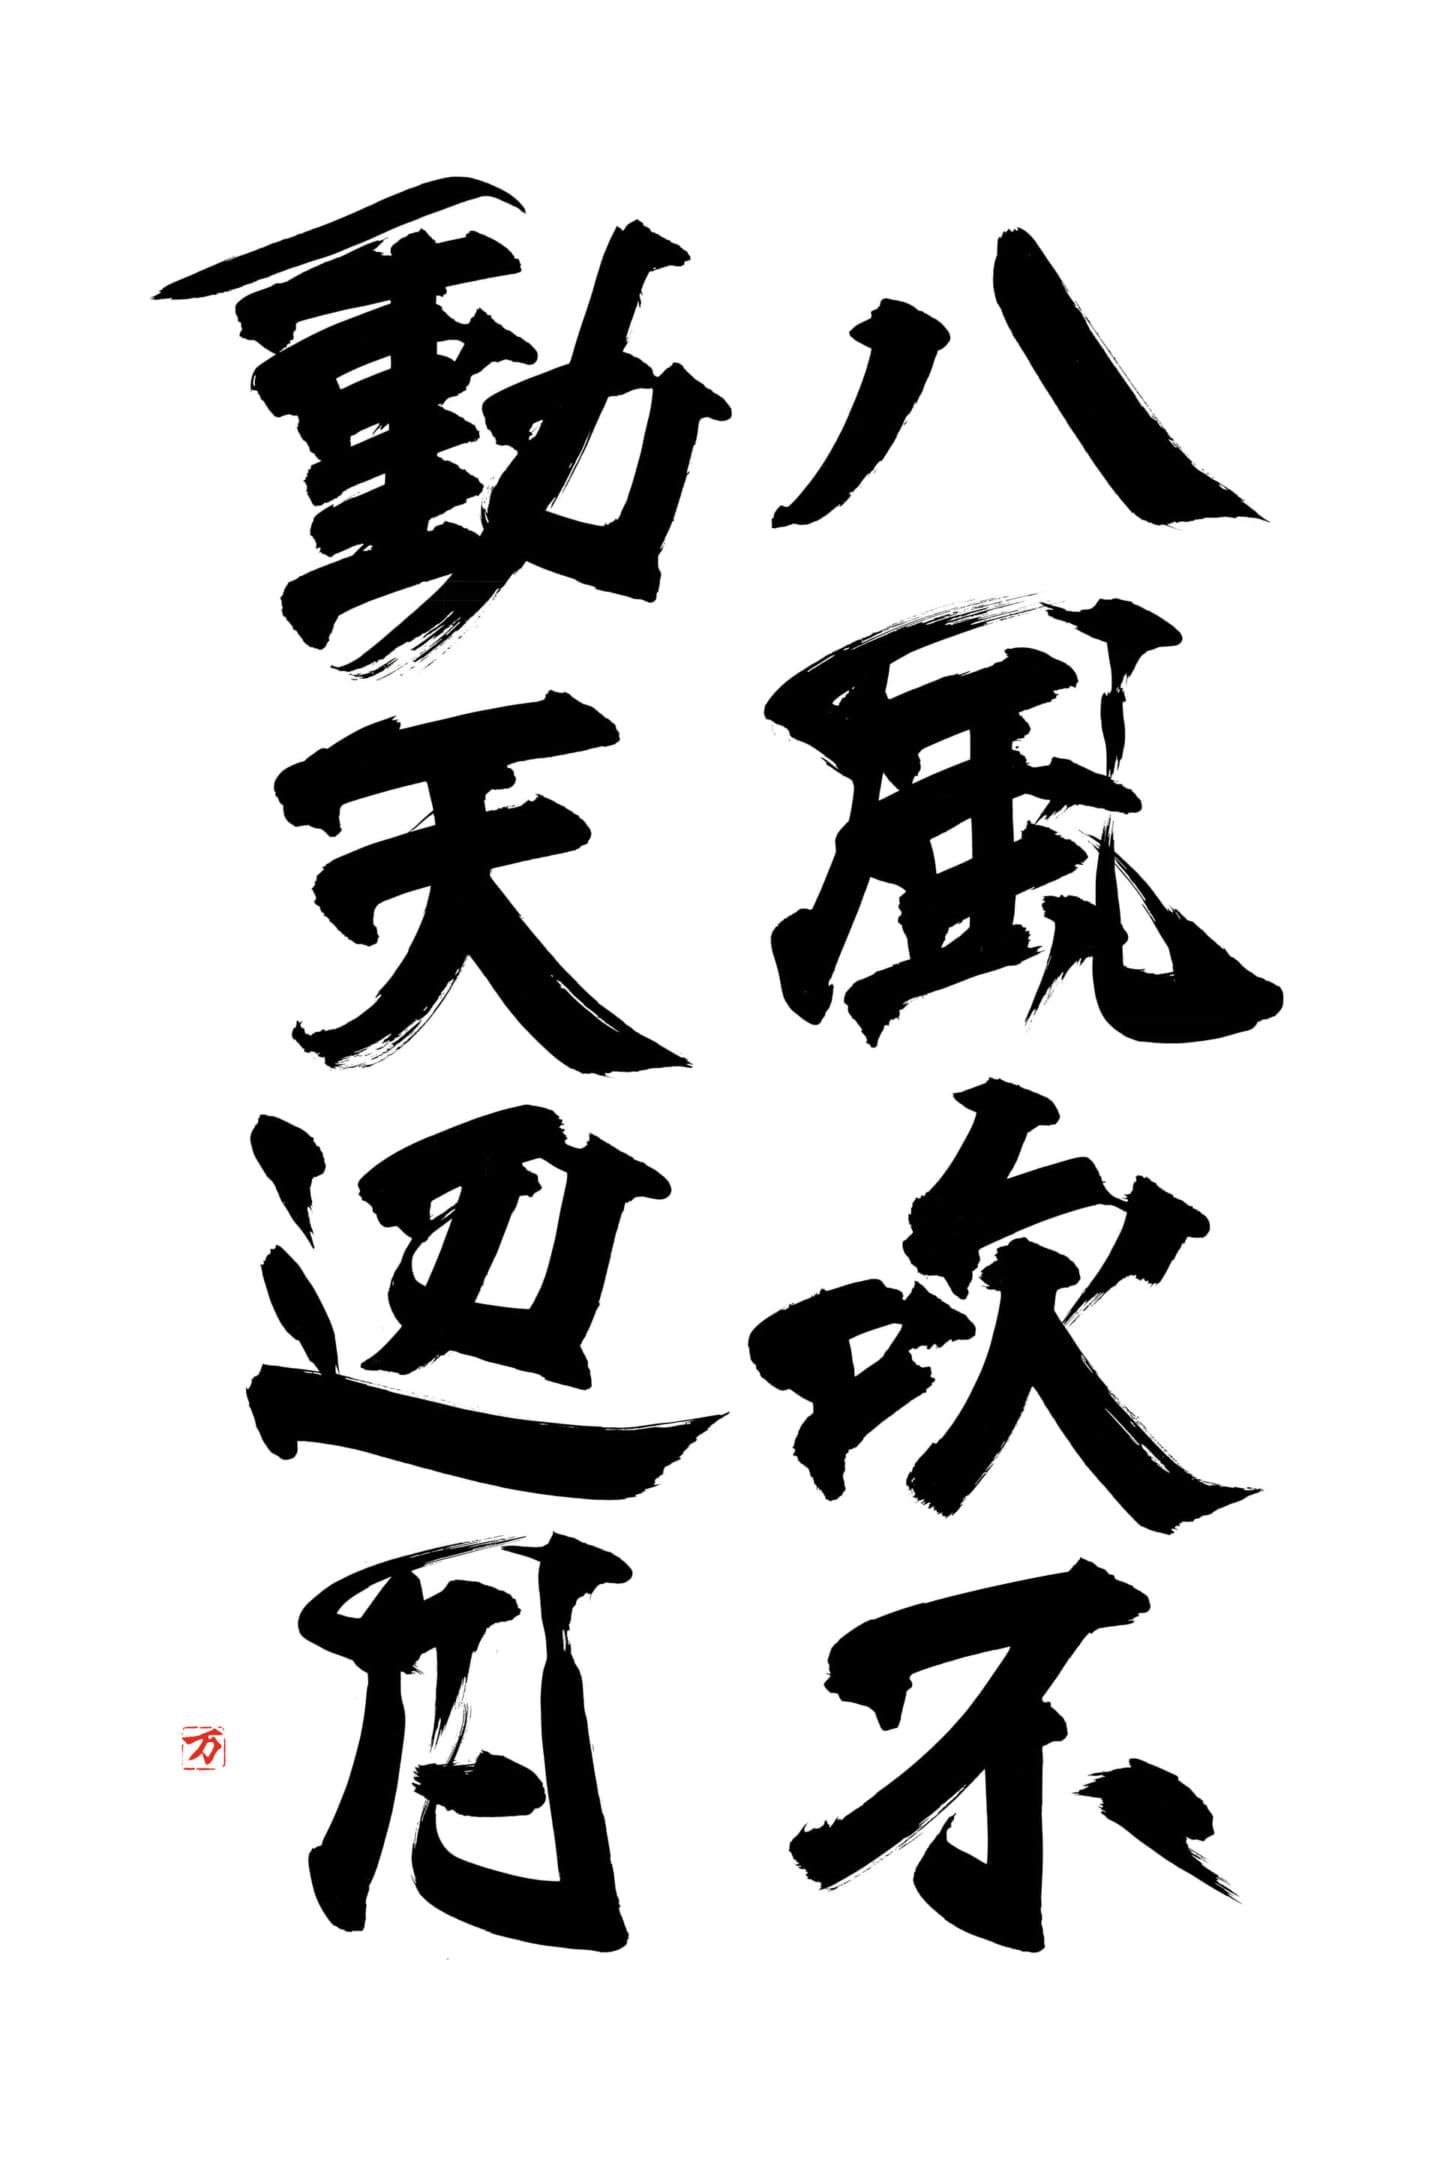 八風吹不
動天辺月
万